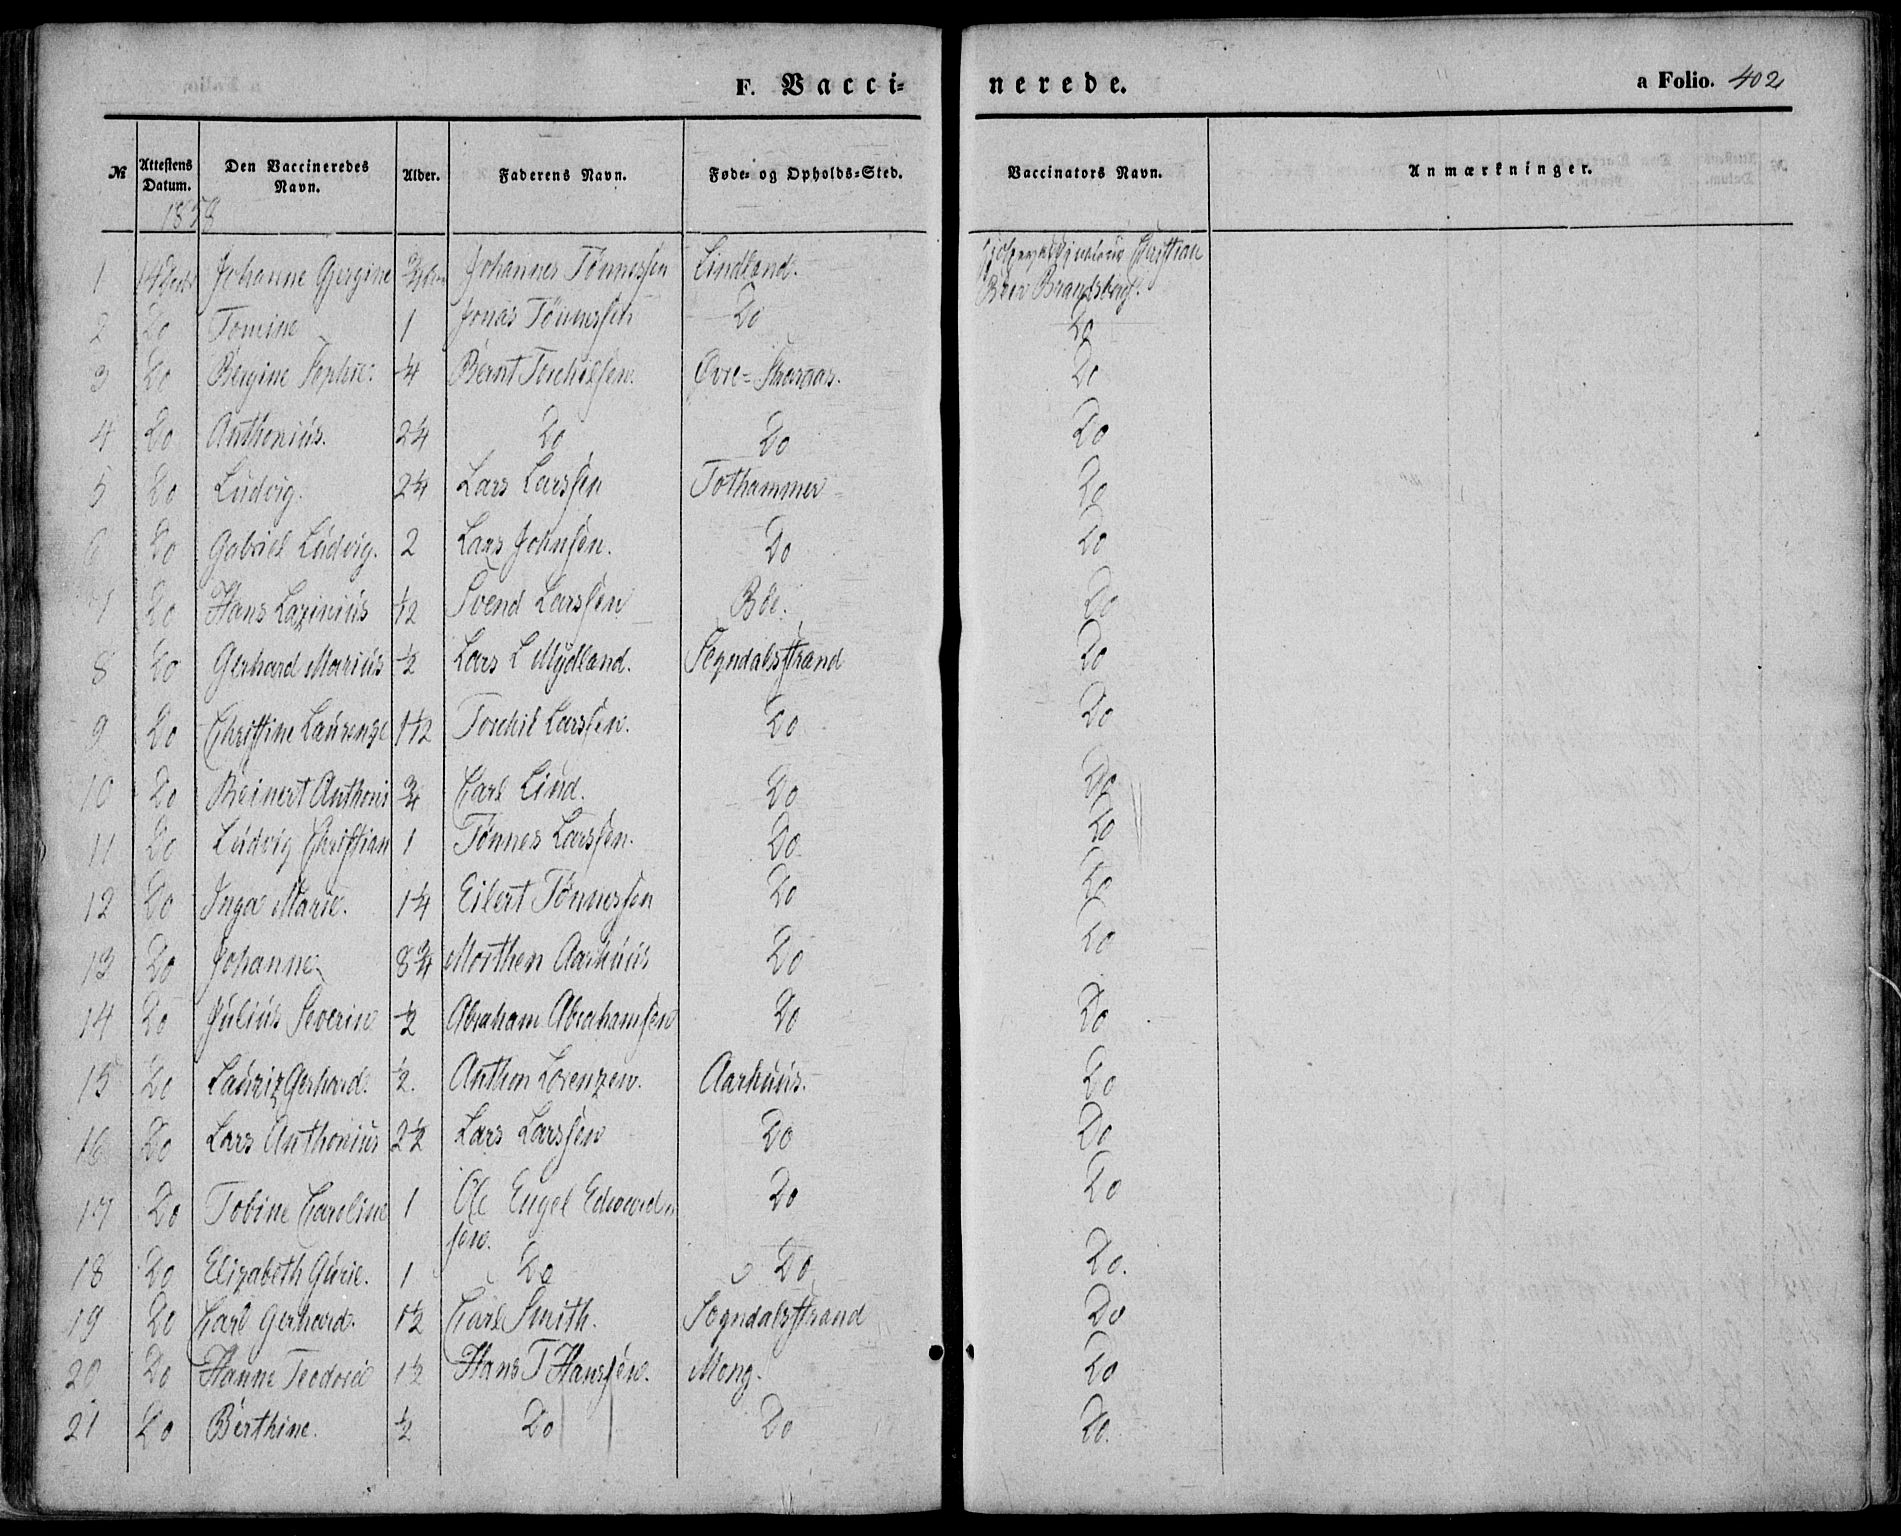 F. Vacci- nerede. a Folio. 402
№ Attestens Datum. Den Vaccineredes Navn. Alder. Faderens Navn. Føde- og Opholds-Sted. Vaccinators Navn. Anmærkninger.
1858
1 14 Johanne Gjergine Johannes Tønnessen Lindland. Christian
2 Do Tomine 1 Jonas Tønnessen Do Do
3 Do Bergine Sophie. ¼ Bernt Torkilsen. Øvre- Do
4 Do Anthonius. 2¼ Do Do Do
5 Do Ludvig. 2¼ Lars Larssen Tothammer Do
6 Do Gabriel Ludvig. 2 Lars Johnsen. Do Do
7 Do Hans Lazinius ½ Svend Larssen Böe. Do
8 Do Gerhard Marius ½ Lars L Mydland. Sogndalsstrand Do
9 Do Christine Laurenze 1½ Torkil Larssen. Do Do
10 Do Reinert Anthoni ¾ Carl Lind. Do Do
11 Do Ludvig Christian 1 Tønnes Larssen. Do Do
12 Do Inga Marie. 1¼ Eilert Tønnessen Do Do
13 Do Johanne 8¾ Morthen Aarhuus Do Do
14 Do Julius Severin ½ Abraham Abrahamsen Do Do
15 Do Lauriz Gerhard. ½. Anthon Lorenzen. Aarhuus. Do
16 Do Lars Anthonius 2½ Lars Larssen Do Do
17 Do Tobine Caroline 1 Ole Engel Edward Do Do
sen.
18 Do Elizabeth Gurie. 1 Do Do Do.
19 Do Carl Gerhard. 1½ Carl Smith. Sogndalsstrand Do
20 Do Hanne Teodore 1½ Hans T Hanssen. Mong. Do
21 Do Berthine. ½ Do Do Do.